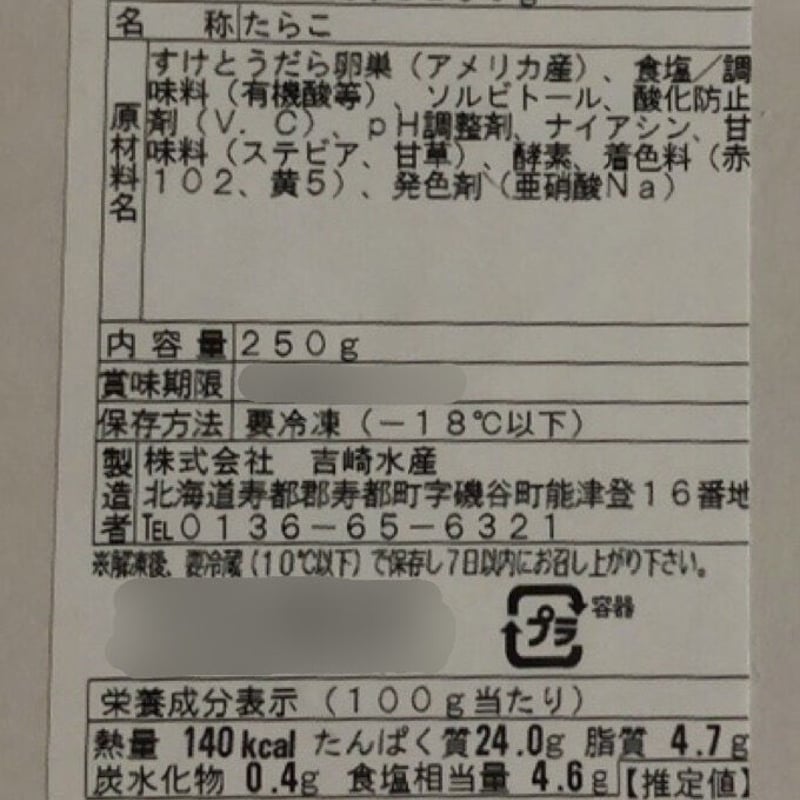 名称 たらこ
原材料名
すけとうだら卵巣（アメリカ産）、食塩／調
味料（有機酸等）、ソルビトール、酸化防止
剤（Ｖ．Ｃ）、ｐＨ調整剤、ナイアシン、甘
味料（ステビア、甘草）、酵素、着色料（赤
１０２、黄５）、発色剤（亜硝酸Ｎａ）
内容量 ２５０ｇ
賞味期限
保存方法 要冷凍（－１８℃以下）
製造者
株式会社 吉崎水産
北海道寿都郡寿都町字磯谷町能津登１６番地
℡０１３６－６５－６３２１
※解凍後、要冷蔵（１０℃以下）で保存し７日以内にお召し上がり下さい。
プラ 容器
栄養成分表示（１００ｇ当たり）
熱量 140kcal たんぱく質24.0g 脂質 4.7g
炭水化物 0.4g 食塩相当量 4.6g【推定値】